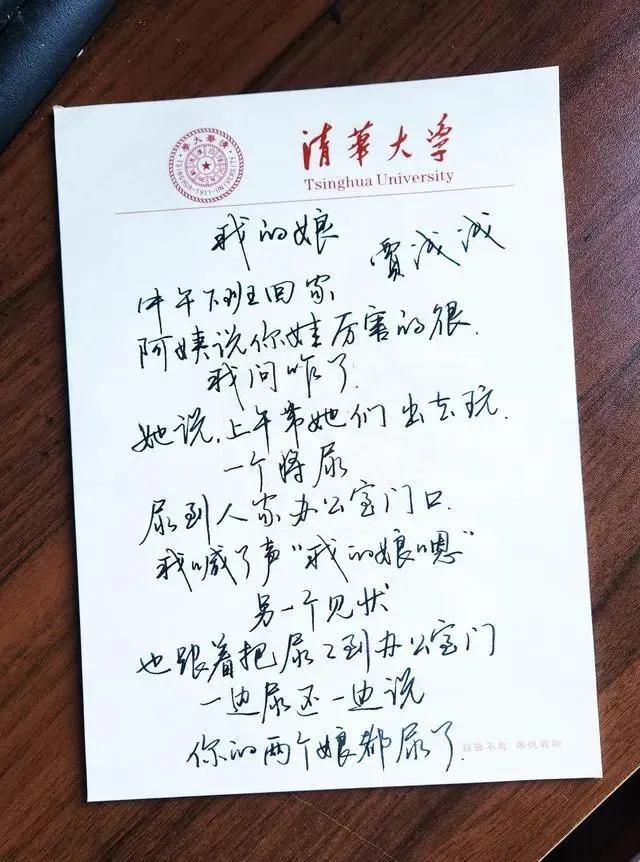 清華大学
Tsinghua University
TSINGHUA-1911-UNIVERSITY
我的娘
贾浅浅
中午下班回家
阿姨说你娃厉害的很.
我问咋了.
她说,上午带她们出去玩.
一个将尿
尿到人家办公室门口.
我喊了声“我的娘嗯”
另一个见状
也跟着把尿尿到办公室门
一边尿还一边说
你的两个娘都尿了.
自强不息 厚德载物